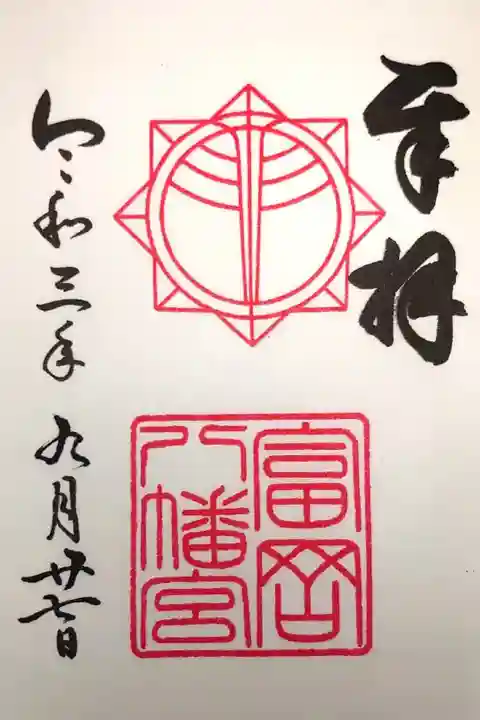 奉拝
富岡
八幡宮
令和三年九月廿七日